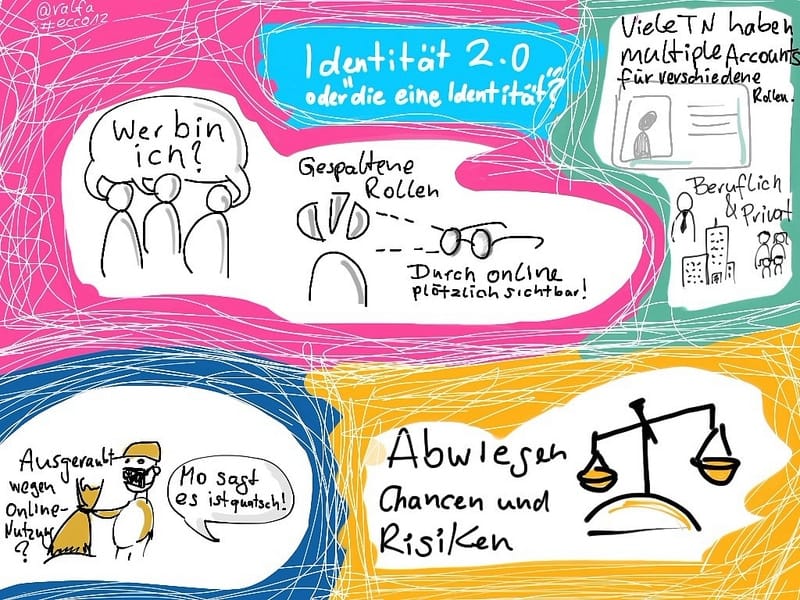 @ralfa
#ecco12
Identität 2.0
oder "die eine Identität"?
Wer bin
ich?
Gespaltene
Rollen
Durch online
plötzlich sichtbar!
Viele TN haben
multiple Accounts
für verschiedene
Rollen.
Beruflich
& Privat
Ausgeraubt
wegen
Online-
Nutzung
?
Mo sagt
es ist quatsch!
Abwiegen
Chancen und
Risiken